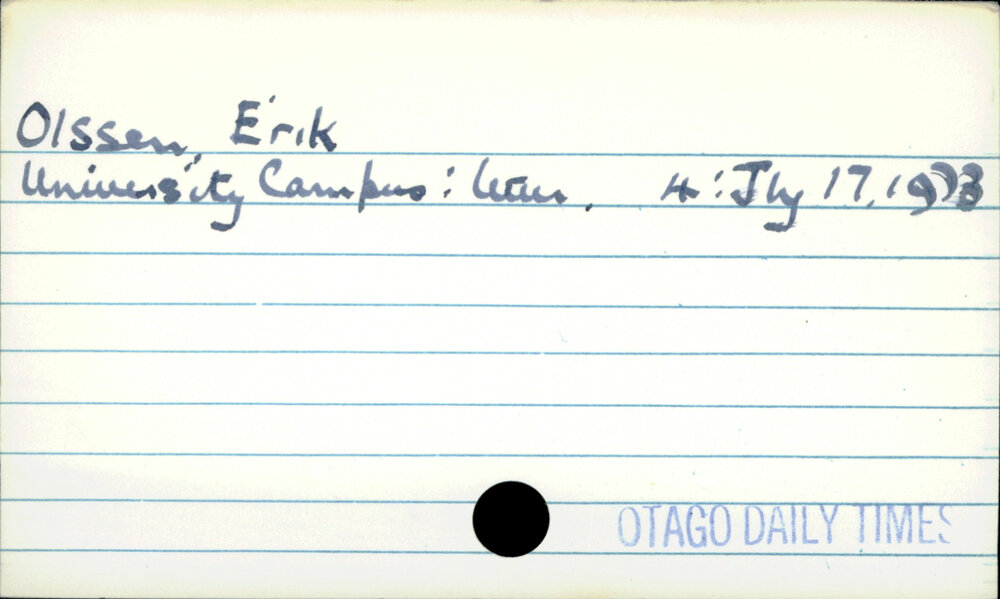 Olssen, Erik
University Campus : letter. 4 : Jly 17, 1973
OTAGO DAILY TIMES